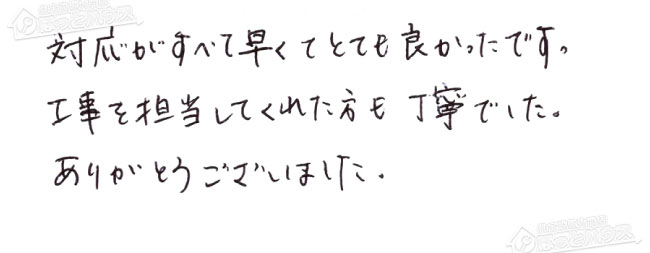 対応がすべて早くてとても良かったです。
工事を担当してくれた方も丁寧でした。
ありがとうございました.